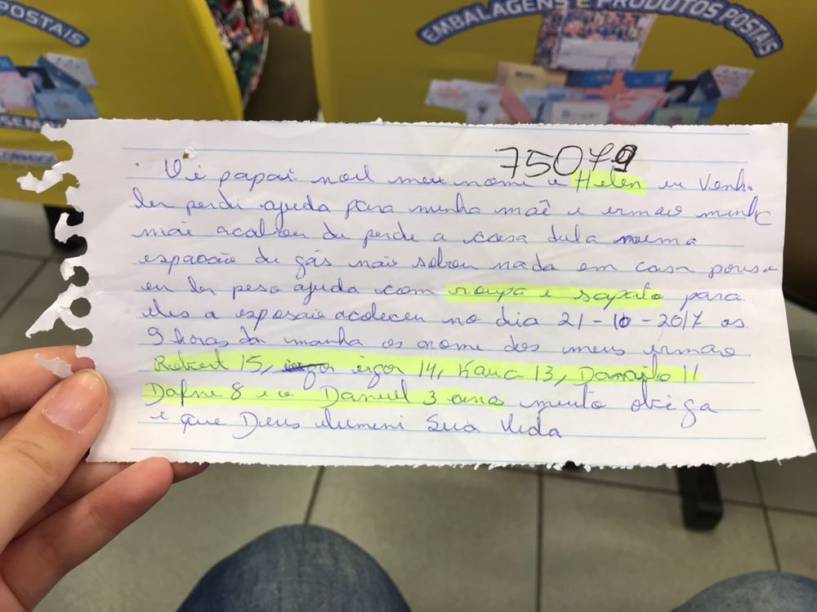 POSTAIS
EMBALAGENS E PRODUTOS POSTAIS
75079
Oi papai noel meu nome e Helen eu Venho
ler perdi ajuda para minha mãe e irmao minha
mãe acabou de perde a casa dela numa
espração de gás não sobrou nada em casa
eu ler peso ajuda com roupa e sapato para
eles a esposão acoleceu no dia 21-10-2017 as
9 horas da manha os nome dos meus irmao
Robert 15, igor 14, Kauã 13, Danylo 11
Dafne 8 e o Daniel 3 anos muito obriga
e que Deus ilumini Sua Vida